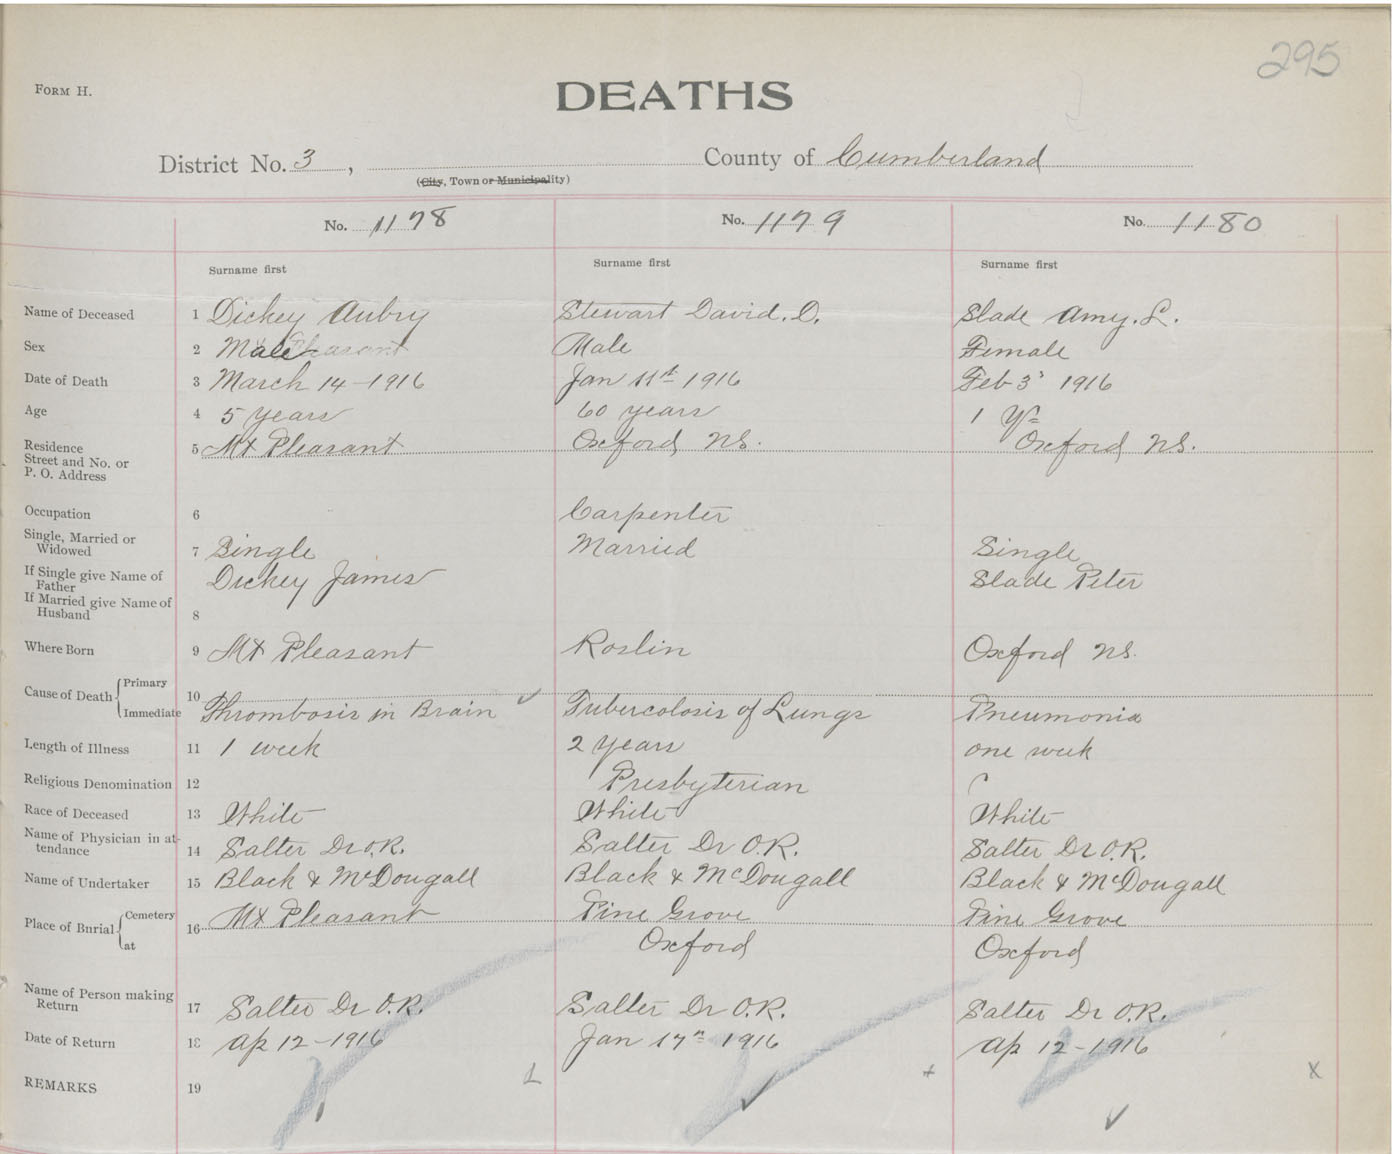 295
FORM H.
DEATHS
District No. 3, County of Cumberland
(City, Town or Municipality)
No. 1178 No. 1179 No. 1180
Surname first Surname first Surname first
Name of Deceased 1 Dickey Aubry Stewart David. O. Slade Amy. L.
Sex 2 Male Male Female
Date of Death 3 March 14-1916 Jan 11th 1916 Feb 3 1916
Age 4 5 years 60 years 1 Yr
Residence
Street and No. or
P. O. Address
5 Mt Pleasant Oxford NS. Oxford NS.
Occupation 6 Carpenter
Single, Married or
Widowed
7 Single Married Single
If Single give Name of
Father
Dickey James Slade Peter
If Married give Name of
Husband
8
Where Born 9 Mt Pleasant Roslin Oxford NS.
Cause of Death Primary
Immediate
10 Thrombosis in Brain Tubercolosis of Lungs Pneumonia
Length of Illness 11 1 week 2 years one week
Religious Denomination 12 Presbyterian
Race of Deceased 13 White White White
Name of Physician in at-
tendance
14 Salter Dr O.R. Salter Dr O.R. Salter Dr O.R.
Name of Undertaker 15 Black & McDougall Black & McDougall Black & McDougall
Place of Burial Cemetery
at
16 Mt Pleasant Pine Grove Pine Grove
Oxford Oxford
Name of Person making
Return
17 Salter Dr O.R. Salter Dr O.R. Salter Dr O.R.
Date of Return 18 Ap 12-1916 Jan 17th 1916 Ap 12-1916
REMARKS 19